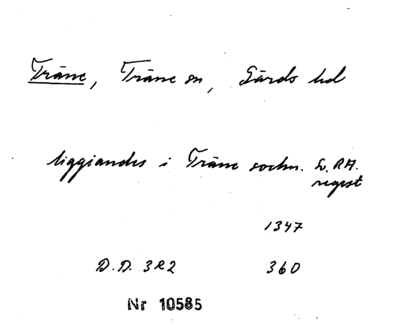 Träne, Träne sn, Gärds hd
liggiandes i Träne sochn. L. RA.
regest
1347
D. D. 3R2 360
Nr 10585